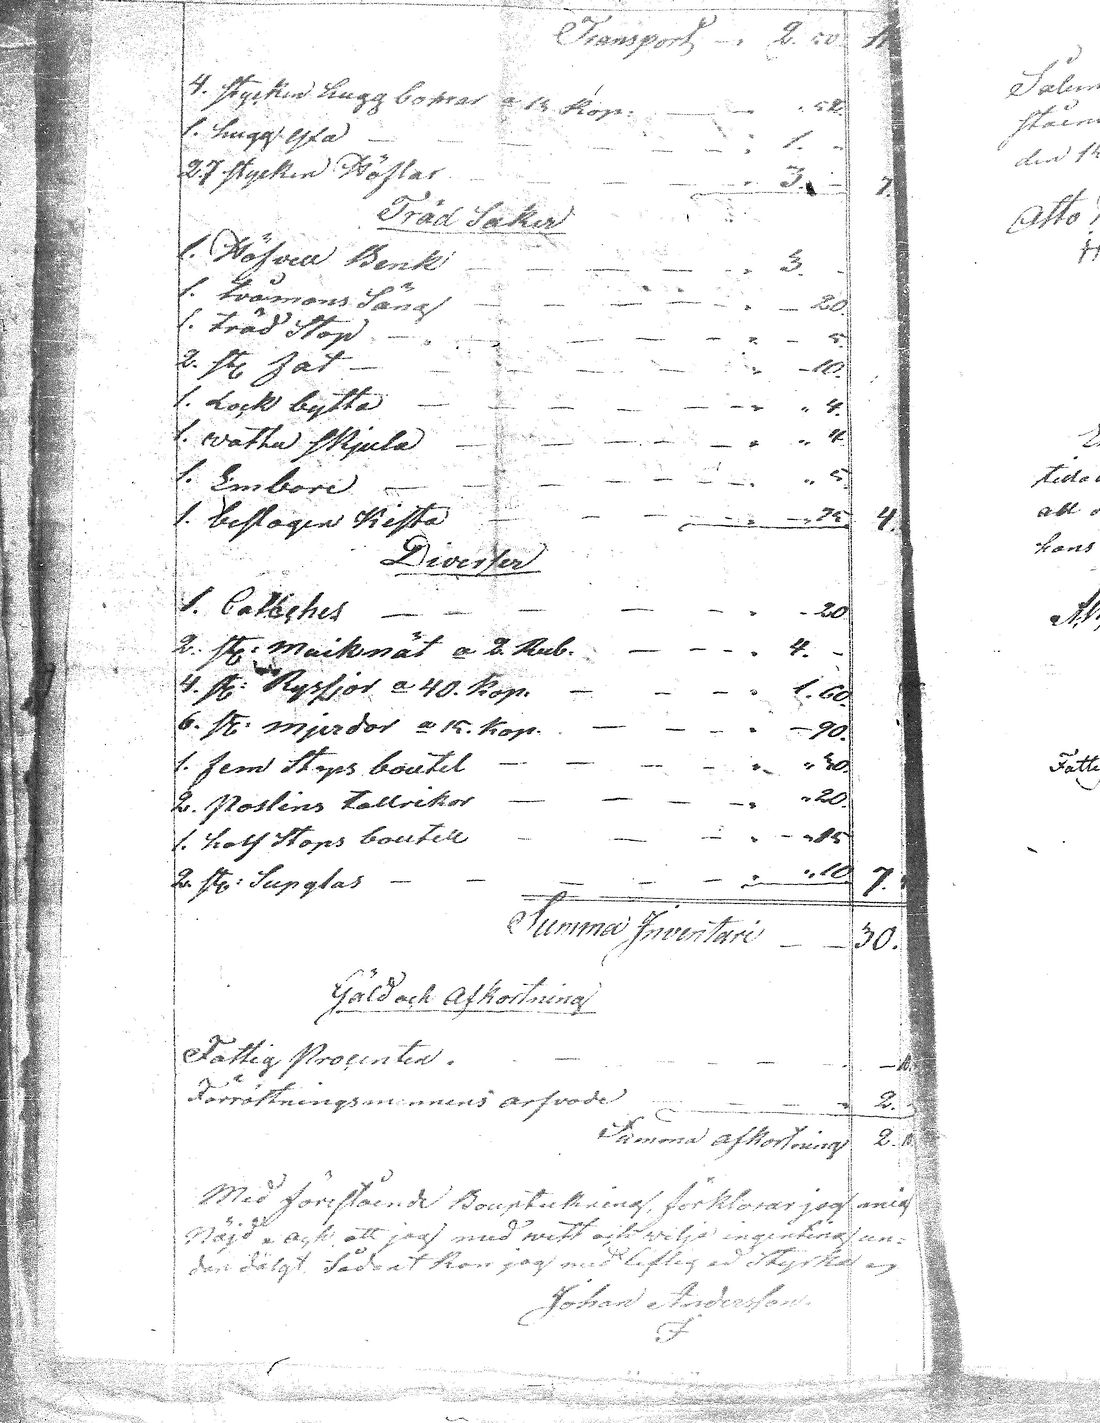 Transport — 2. 50. 11
4. stycken hugg borrar a 13 Kop. — 52.
1. hugg yxa — 1. -
27 stycken Höflar — 3. - 7.
Träd Saker
1. Höfvell Benk — 3. -
1. tvåmans Säng — 20.
1. träd Stop — 5.
2. st: fat — 10.
1. Lock bytta — 4.
1. vattu skjula — 4
1. Embare — 5.
1. beslagen Kista — 75 4.
Diverser
1. Catiches — 20
2. st: maiknät a 2. Rub. — 4. -
4. st: Rysjor a 40. Kop. — 1. 60.
6. st: mjerdor a 15. Kop. — 90.
1. fem Stops boutel — 30.
2. Poslins tallrikor — 20.
1. half Stops boutell — 15
2. st: Supglas — 10 7.
Summa Inventari — 30.
Gäld och Afkortning
Fattig Procenten. —
Förrättningsmannens arfvode — 2.
Summa afkortning 2.
Med förestående Bouptekning, förklarar jag mig
Nöjd, och att jag med vett och vilja ingenting un=
dan dölgt. Sådant kan jag med liflig ed Styrka
Johan Andersson.
Sålun
den 18
Otto
tida
all
hans
Fatti